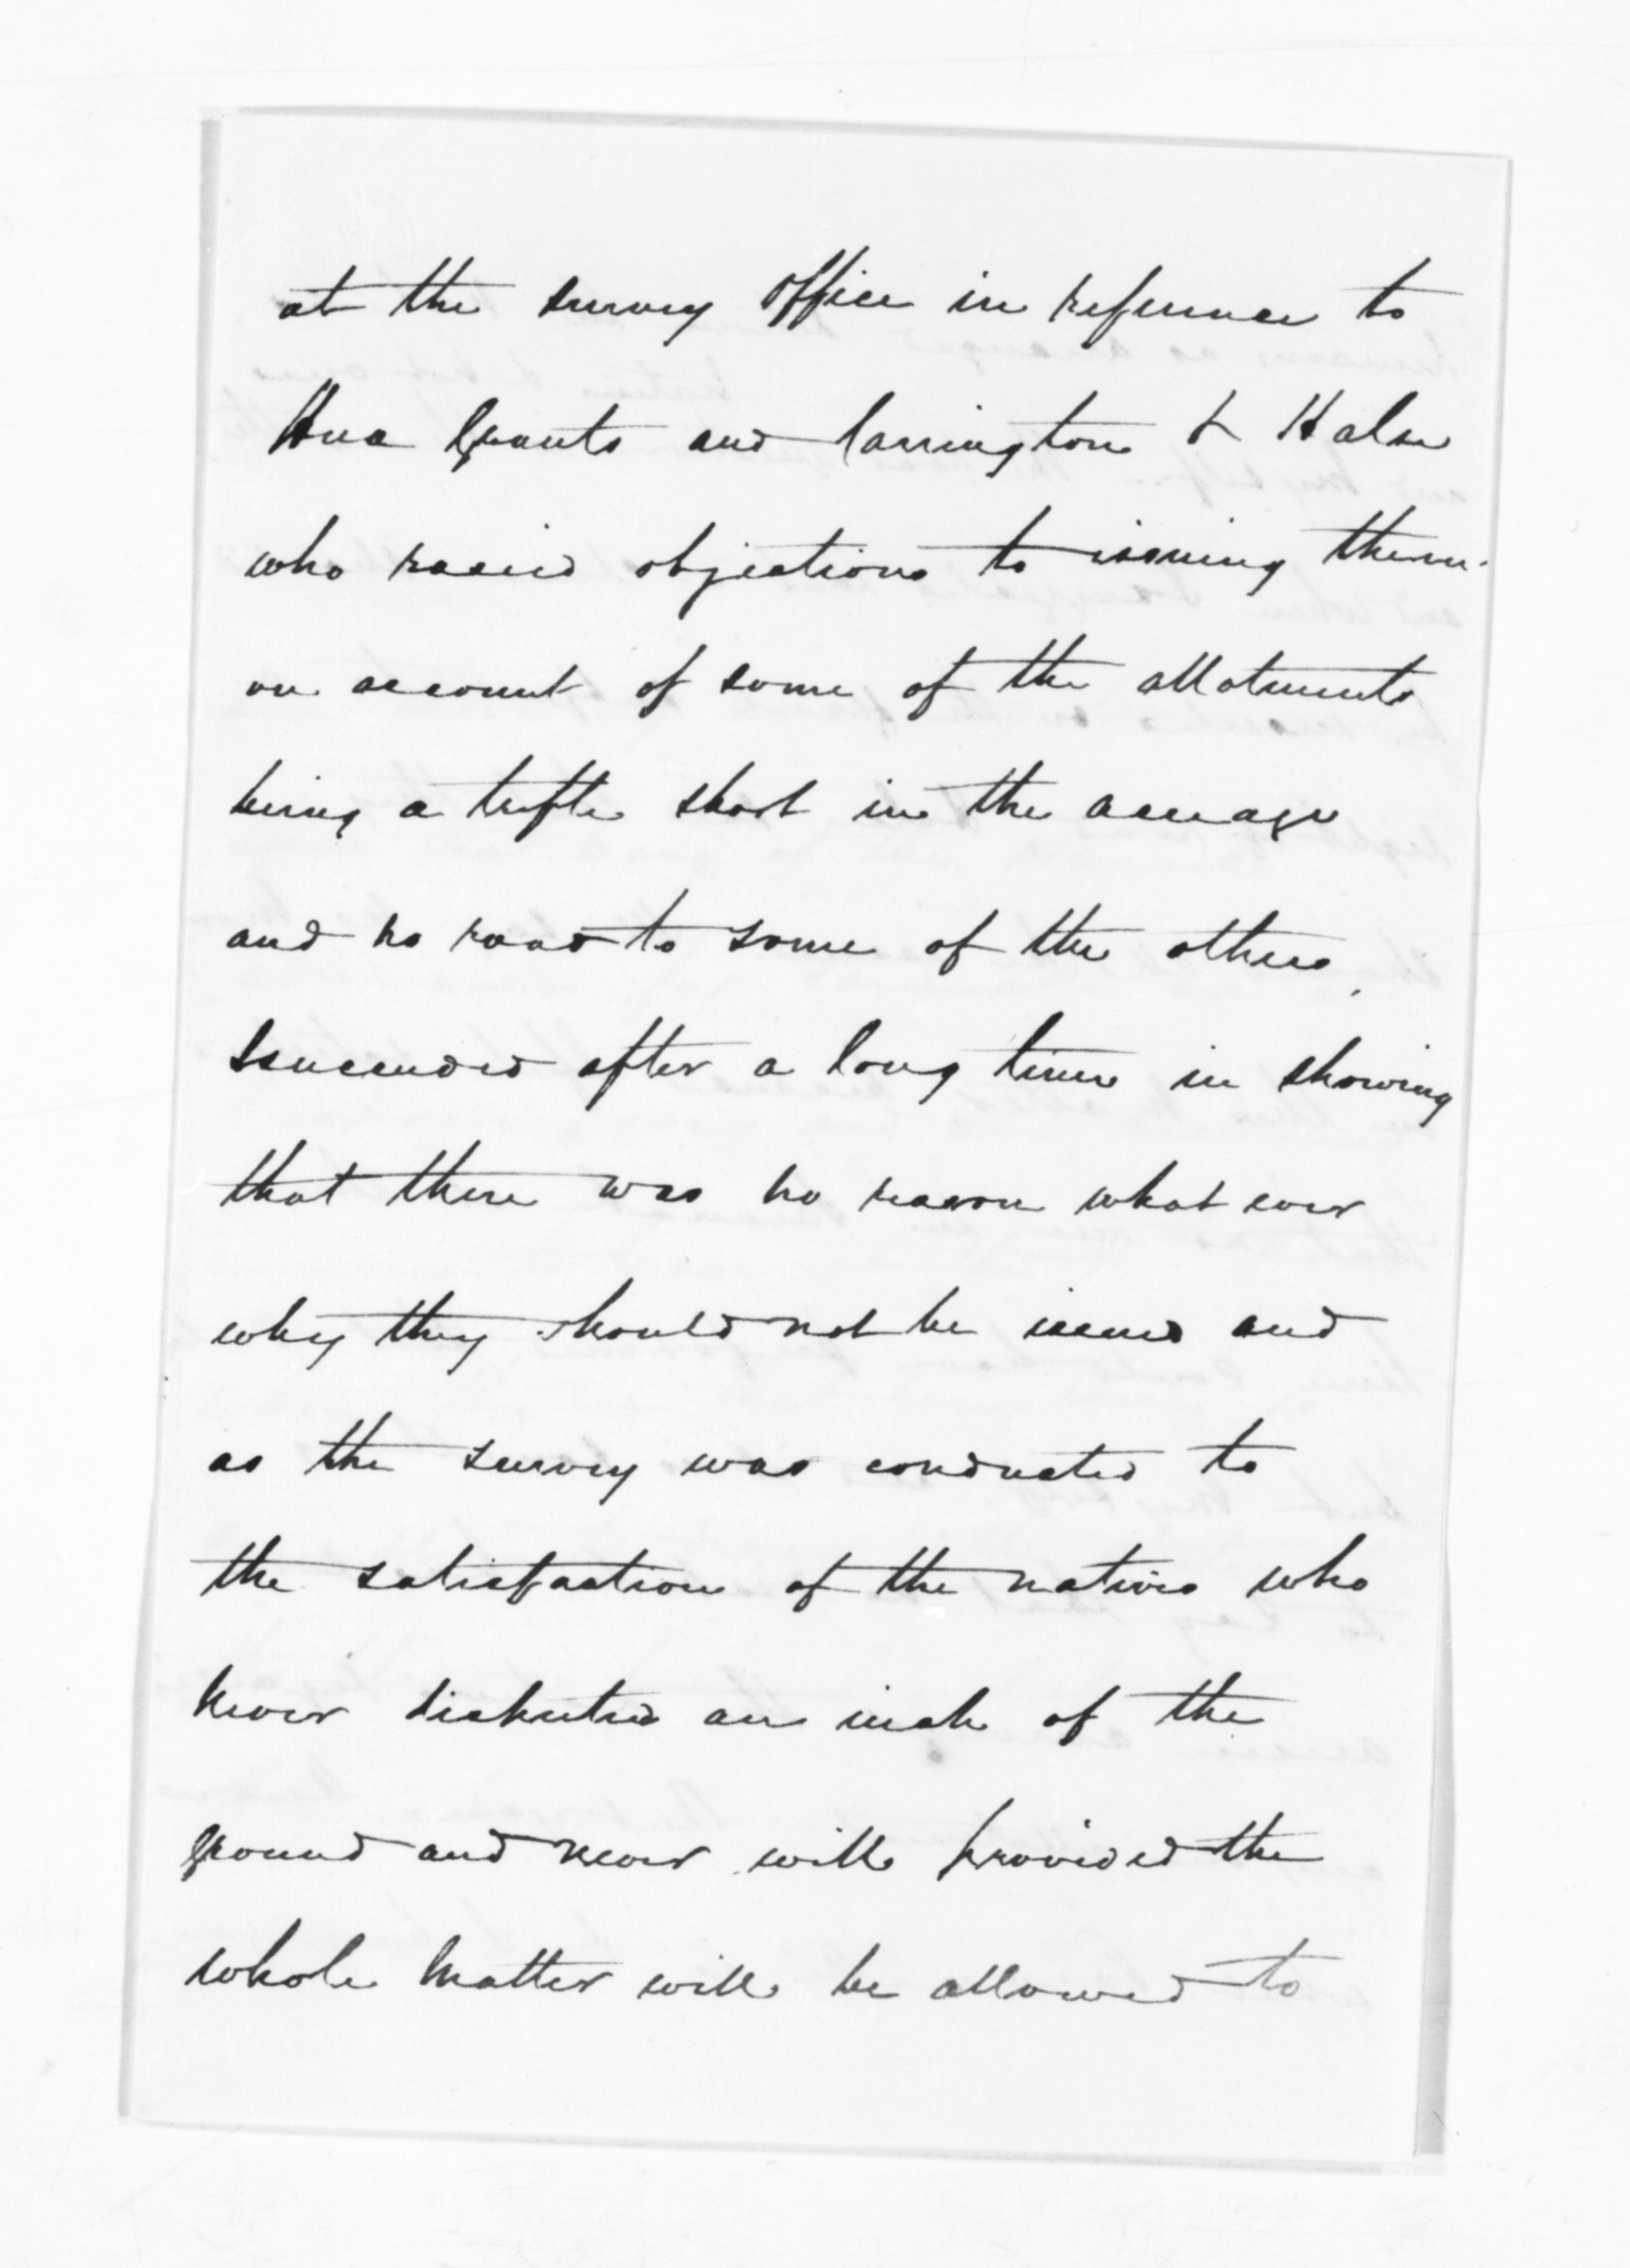 at the survey office in reference to
Hua Grants and Carrington & Halse
who raised objections to issuing them
on account of some of the allotments
being a trifle short in the acreage
and no road to some of the others,
I succeeded after a long time in showing
that there was no reason what ever
why they should not be issued and
as the survey was conducted to
the satisfaction of the natives who
never disputed an inch of the
ground and never will provided the
whole matter will be allowed to